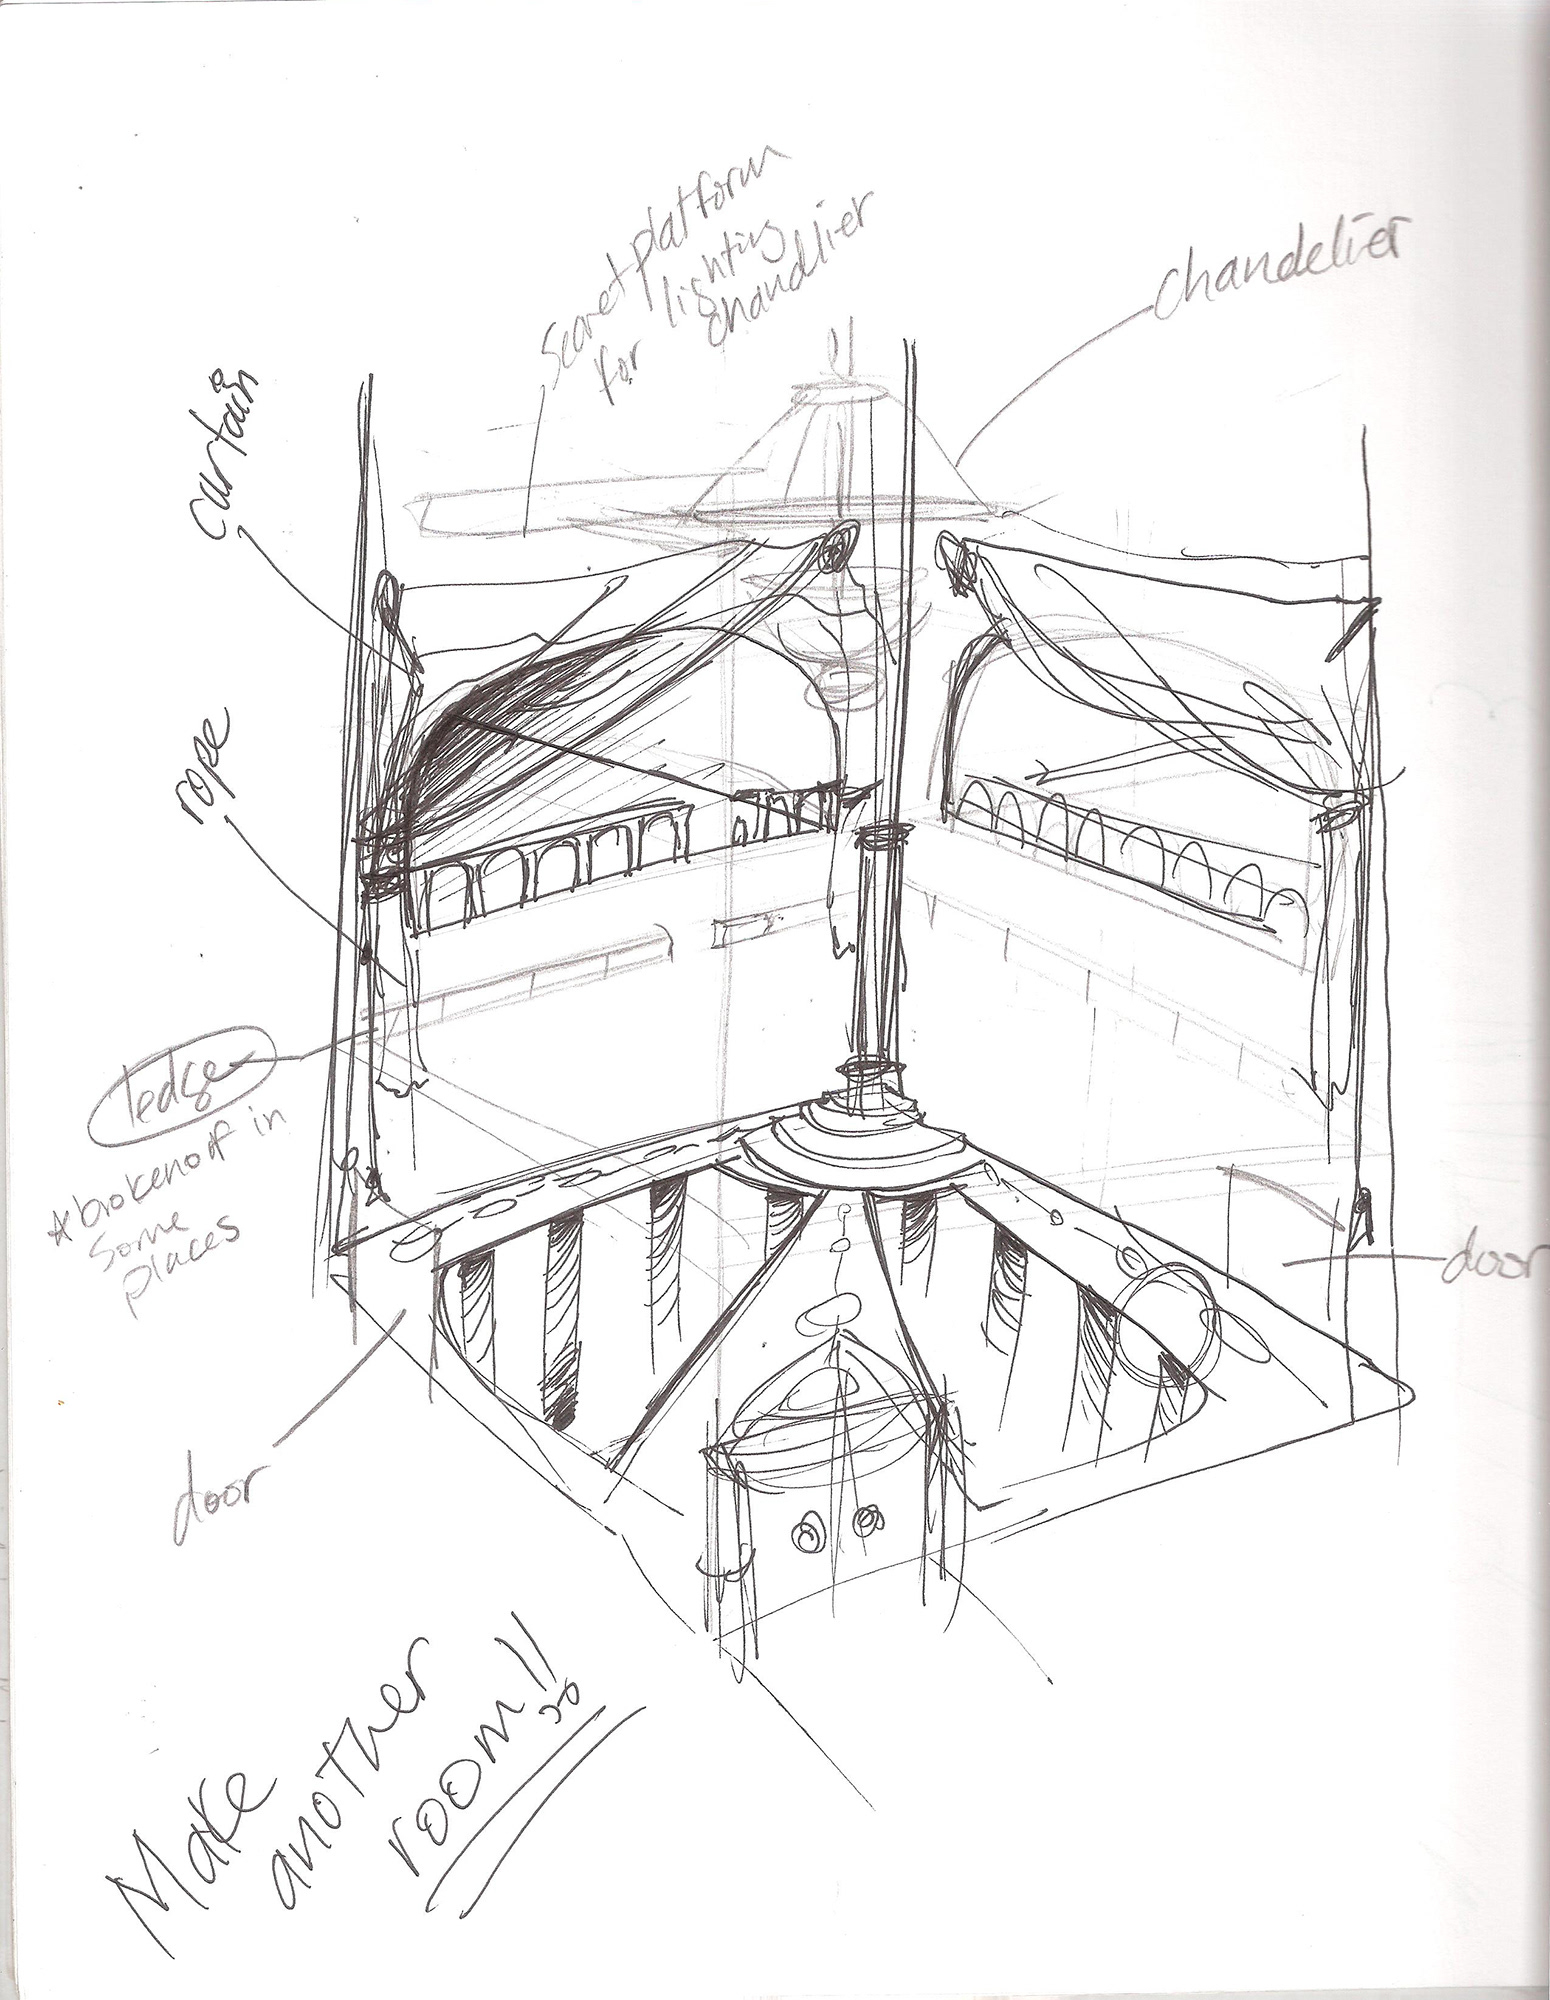 secret platform
for lighting
chandlier
chandelier
curtain
rope
ledge
*broken off in
some
places
door
door
Make
another
room!!